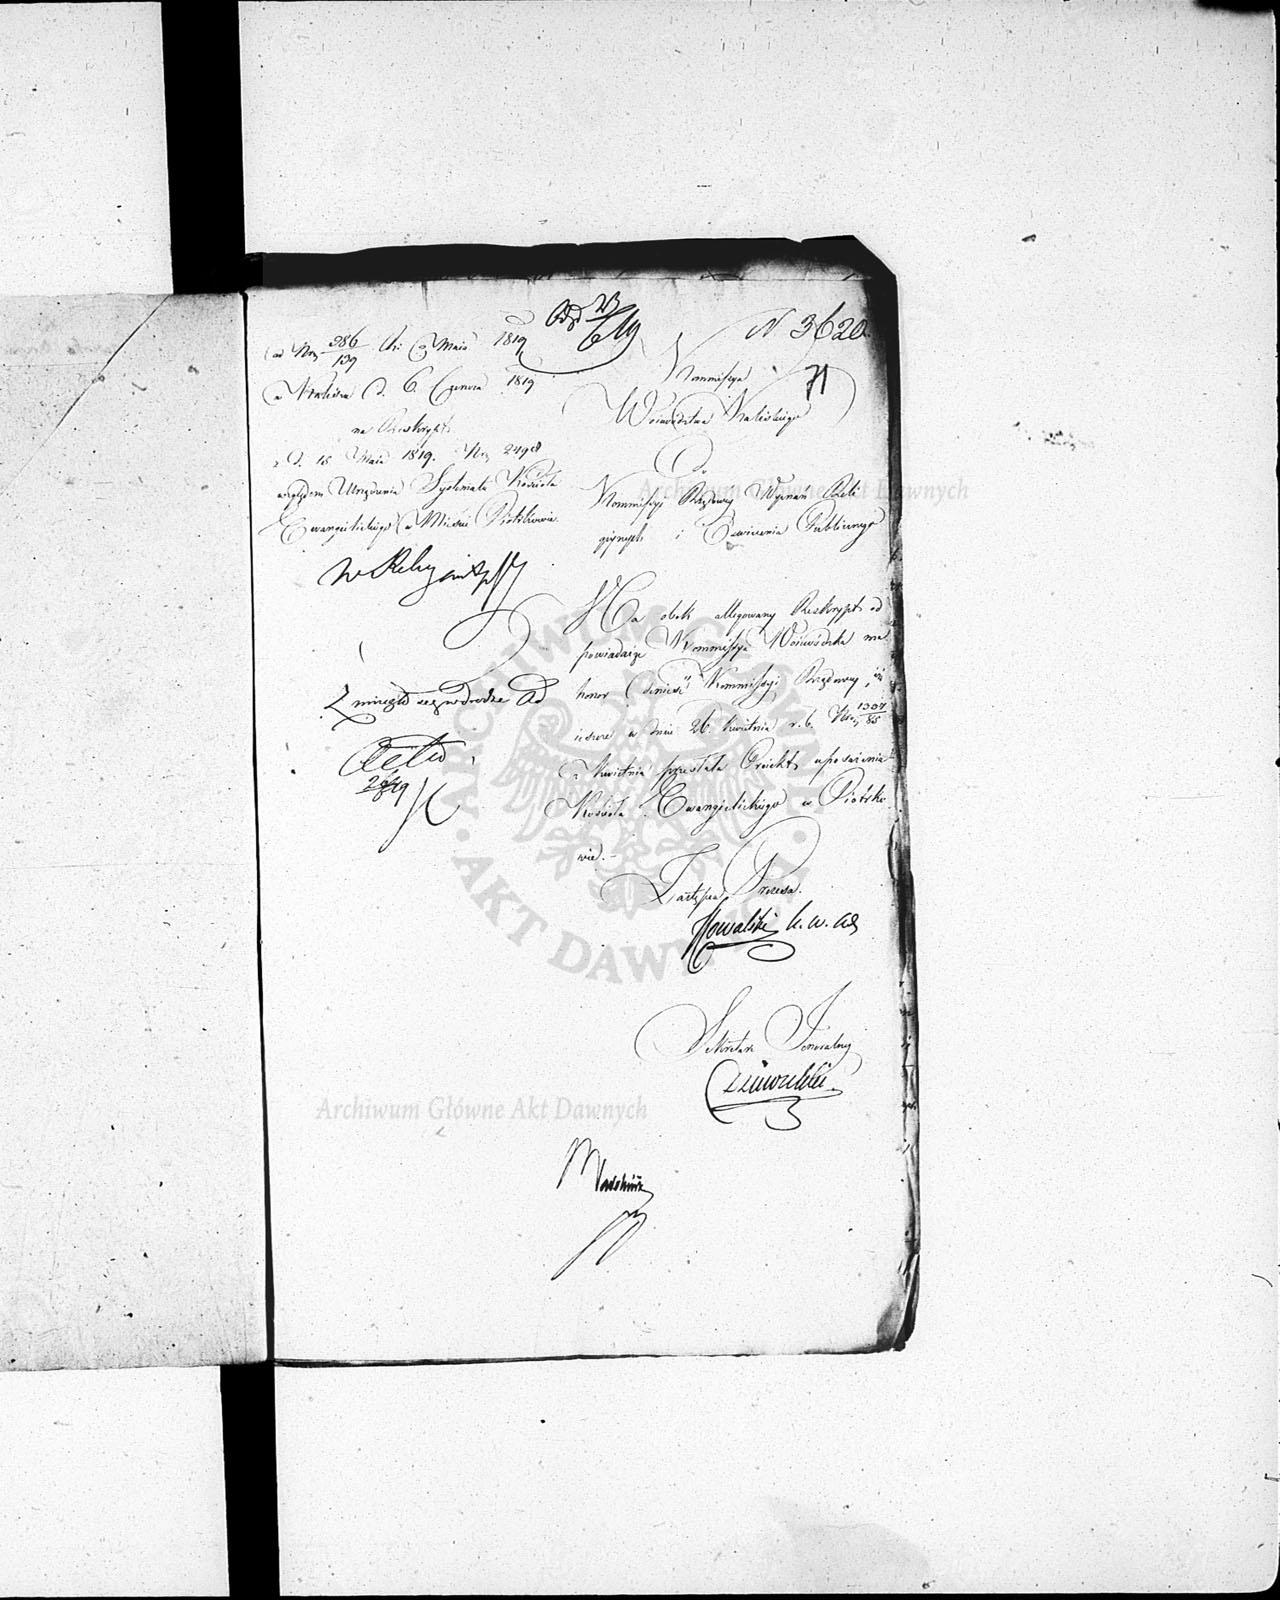 Odp 23/6 19
N 3620.
71
ad Nro 386/139 Maia 1819
w Kaliszu d. 6 Czerwca 1819
na Reskrypt
z d. 18 Maia 1819. Nro 2498
względem Urządzenia Systematu Kościoła
Ewangielickiego w Mieście Piotrkowie.
Kommissya
Województwa Kaliskiego
Do
Kommissyi Rządowey Wyznań Reli
giynych i Oświecenia Publicznego
Na obok allegowany Reskrypt od
powiadaiąc Kommissya Woiewódzka ma
honor donieść Kommissyi Rządowey, iż
ieszcze w dniu 26. kwietnia r. b. Nro 1307/85
z kwietnia przesłała Proiekt uposażenia
Kościoła Ewangielickiego w Piotrko
wie. –
Zastępca Prezesa.
Kowalski k. w. ad
Sekretarz Jeneralny
ad
Acta
Archiwum Główne Akt Dawnych
Archiwum Główne Akt Dawnych
ARCHIWUM GŁÓWNE AKT DAWNYCH